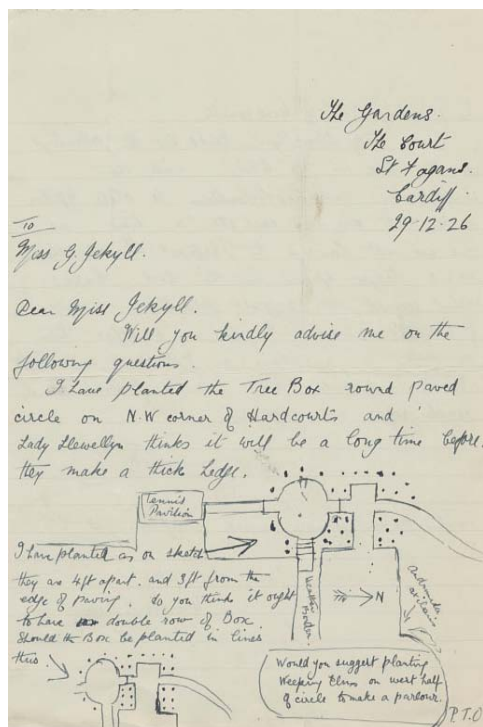 The Gardens.
The Court
St Fagans.
Cardiff.
29-12-26
To
Miss G. Jekyll.
Dear Miss Jekyll.
Will you kindly advise me on the
following questions.
I have planted the Tree Box round paved
circle on N.W corner of Hardcourts and
Lady Llewellyn thinks it will be a long time before
they make a thick hedge.
Tennis
Pavilion
I have planted as on sketch
they are 4ft apart. and 3ft from the
edge of paving. Do you think it ought
to have double row of Box.
Should the Box be planted in lines
thus.
Border
N
Would you suggest planting
Weeping Elms on west half
of circle to make a parlour.
P.T.O